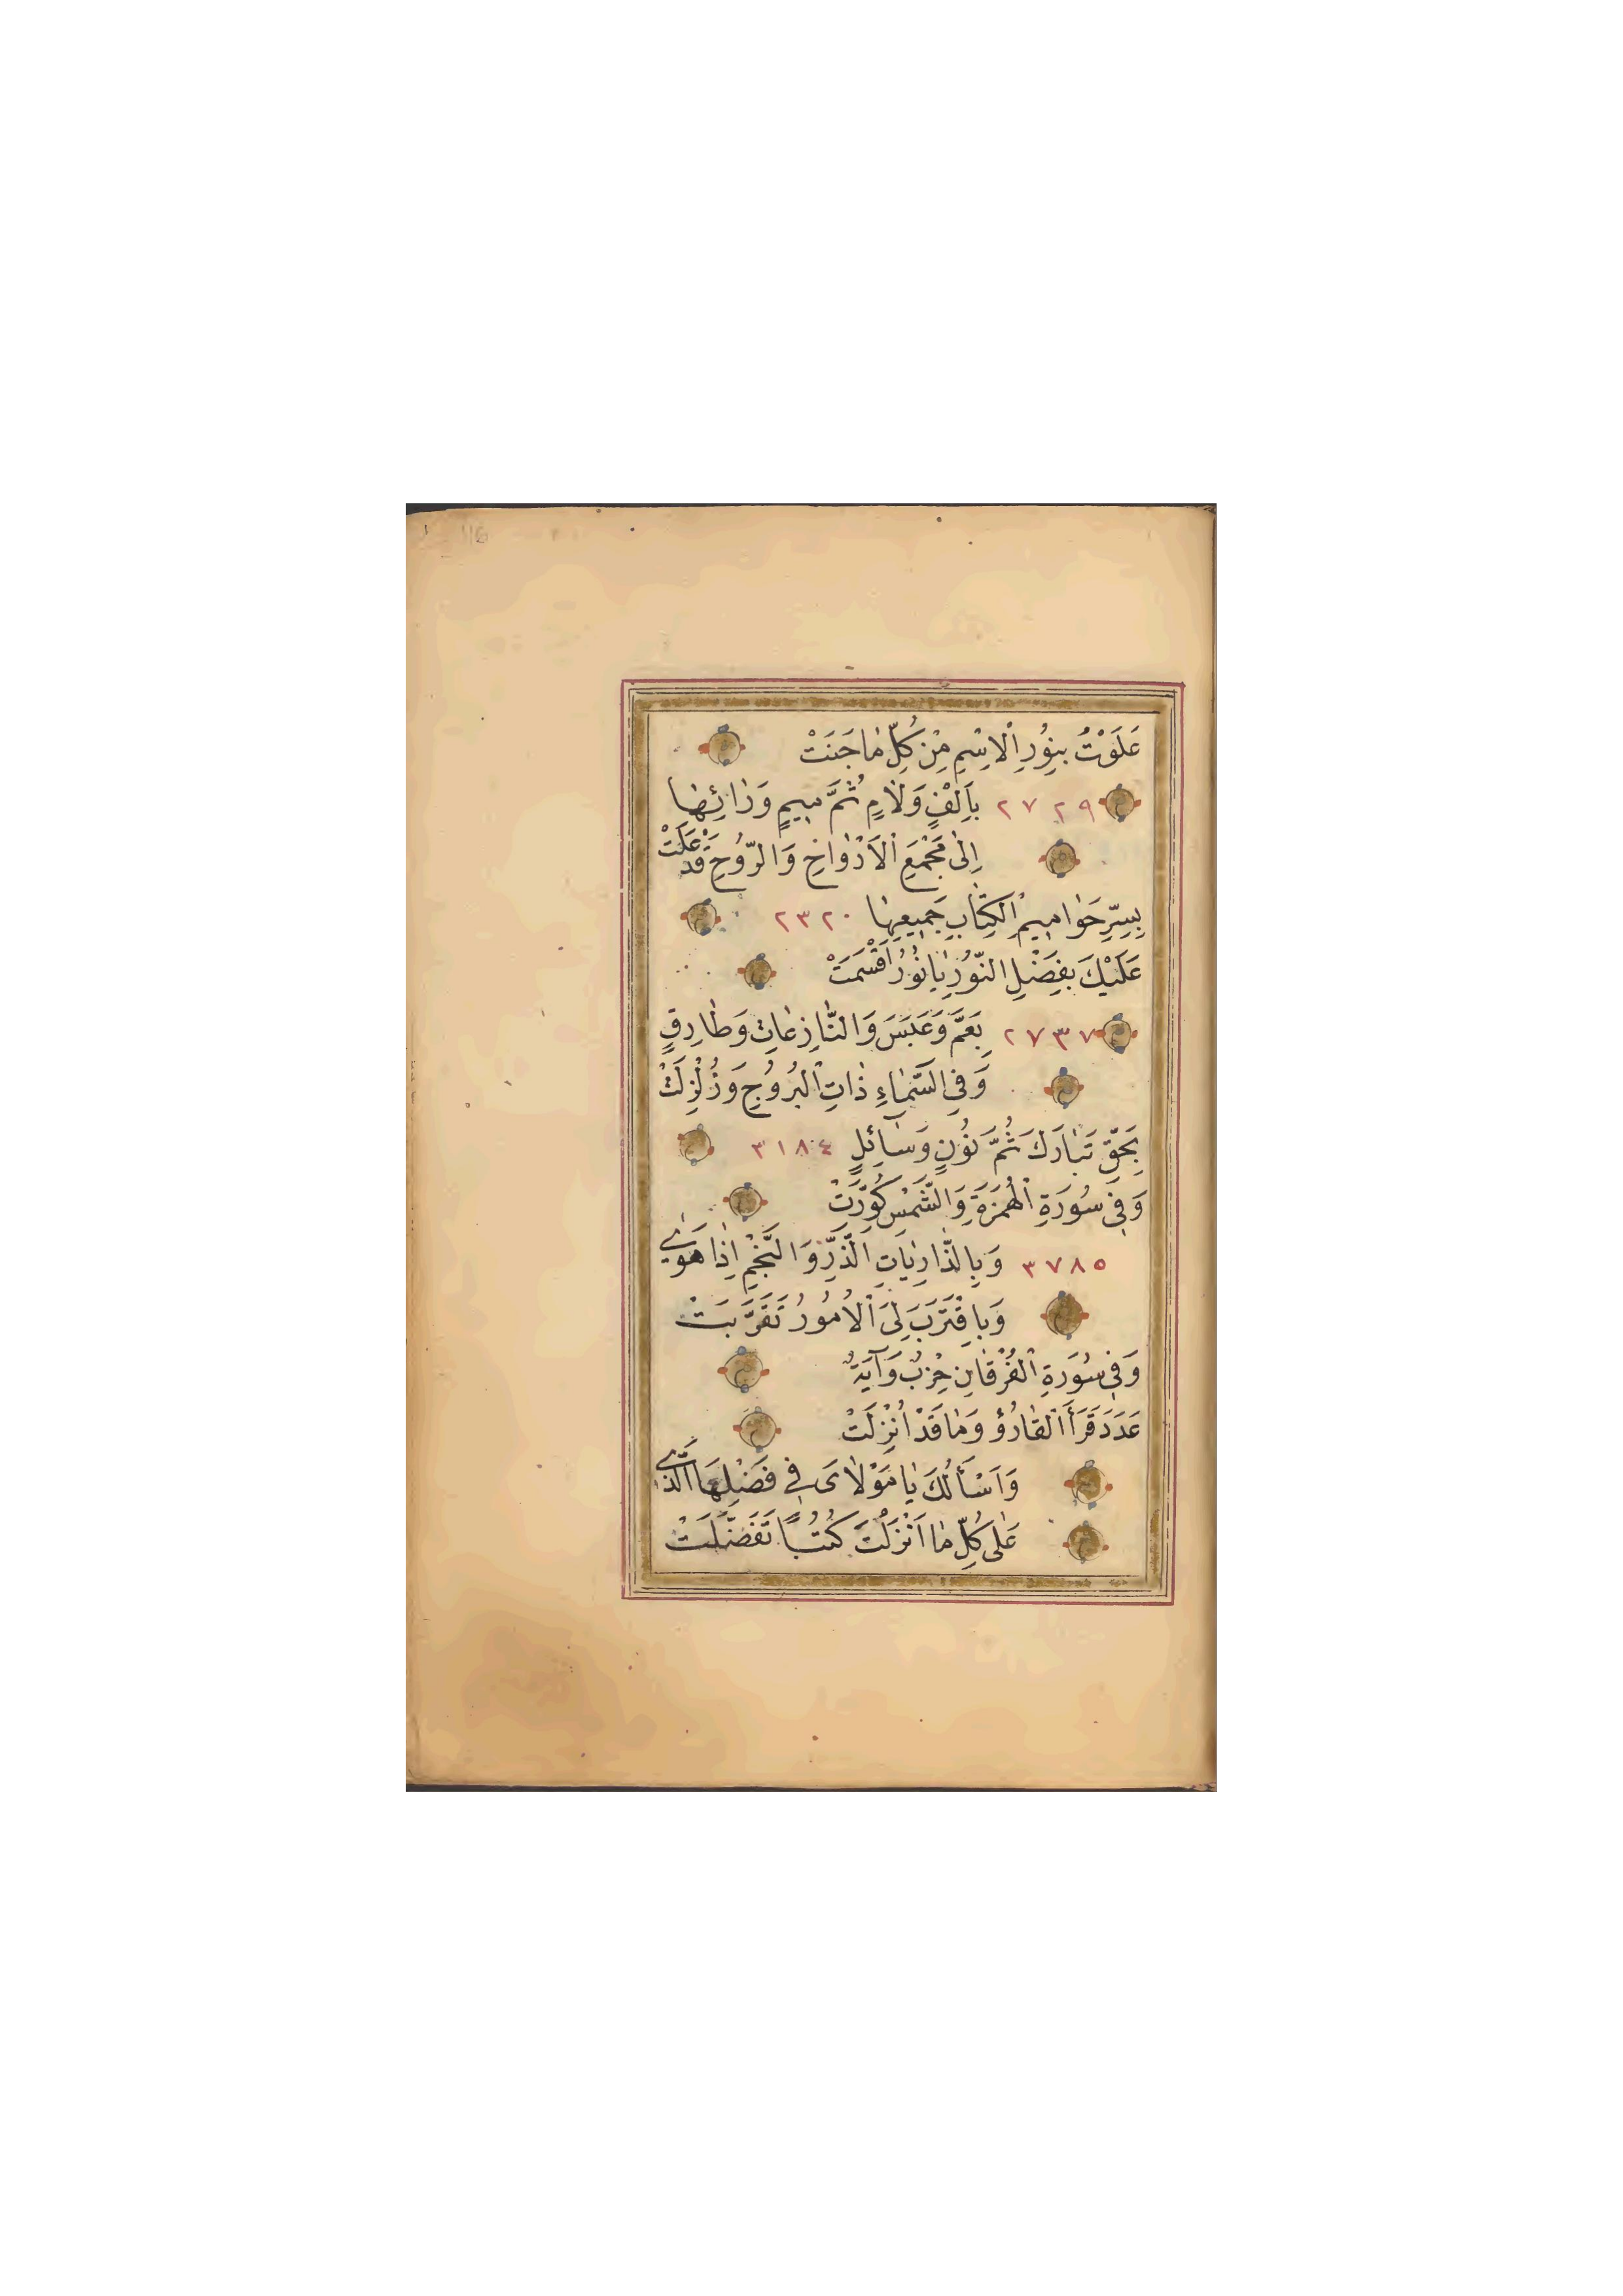 عَلَوْتُ بِنُورِ الْاِسْمِ مِنْ كُلِّ مٰا جَنَتْ
٢٧٢٩ بِاَلِفٍ وَلٰامٍ ثُمَّ مِيمٍ وَرٰائِهٰا
اِلىٰ مَجْمَعِ الْاَرْوٰاحِ وَالرُّوحِ قَدْ عَلَتْ
بِسِرِّ حَوٰامِيمِ الْكِتٰابِ جَمِيعِهٰا ٢٣٢٠
عَلَيْكَ بِفَضْلِ النُّورِ يٰا نُورُ اَقْسَمَتْ
٢٧٣٧ بِعَمَّ وَعَبَسَ وَالنّٰازِعٰاتِ وَطٰارِقٍ
وَفِي السَّمٰاءِ ذٰاتِ الْبُرُوجِ وَزُلْزِلَتْ
بِحَقِّ تَبٰارَكَ ثُمَّ نُونٍ وَسٰآئِلٍ ٣١٨٤
وَفِي سُورَةِ الْهُمَزَةِ وَالشَّمْسِ كُوِّرَتْ
٣٧٨٥ وَبِالذّٰارِيٰاتِ الذَّرِّ وَالنَّجْمِ اِذٰا هَوىٰ
وَبِاقْتَرَبَ لِيَ الْاُمُورُ تَقَرَّبَتْ
وَفِي سُورَةِ الْفُرْقٰانِ حِزْبٌ وَآيَةٌ
عَدَدَ قَرَأَ الْقٰارُؤُ وَمٰا قَدْ اُنْزِلَتْ
وَاَسْأَلُكَ يٰا مَوْلٰاىَ فِي فَضْلِهَا الَّذِي
عَلىٰ كُلِّ مٰا اَنْزَلْتَ كُتُبًا تَفَضَّلَتْ